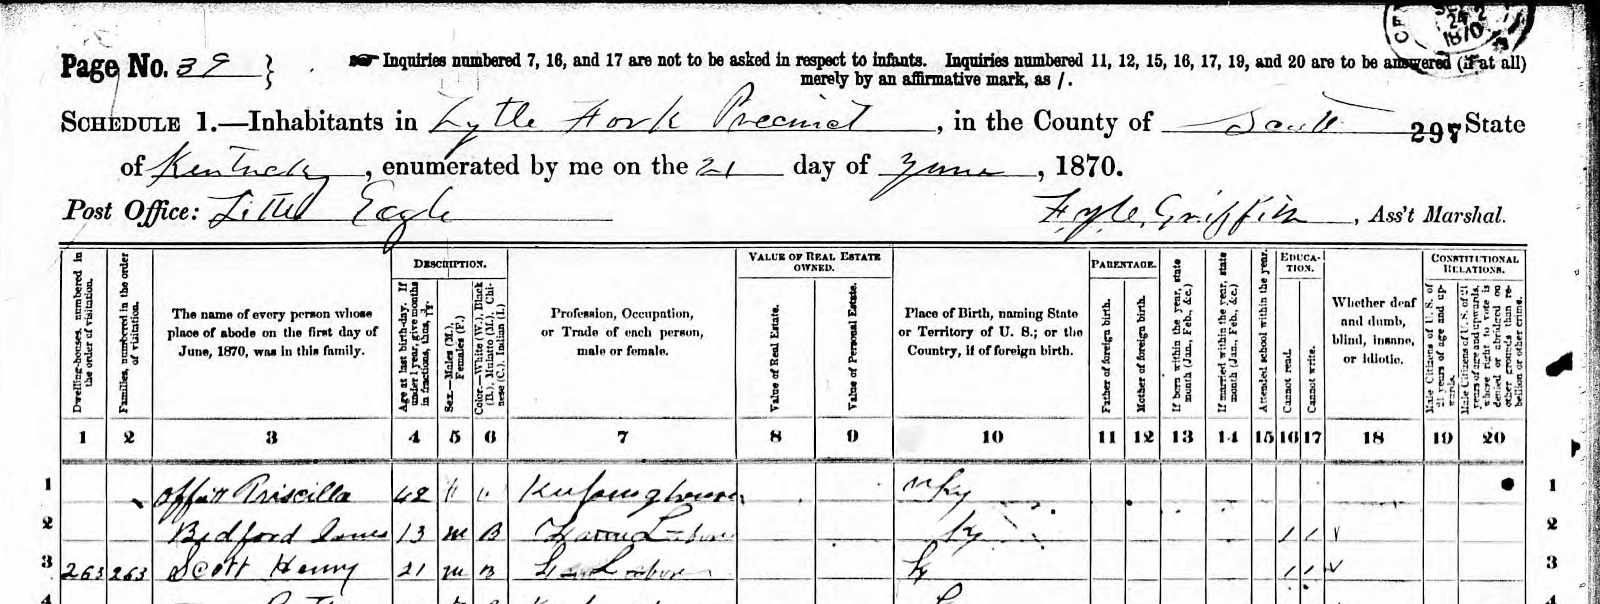 24
1870
Page No. 39 } Inquiries numbered 7, 16, and 17 are not to be asked in respect to infants. Inquiries numbered 11, 12, 15, 16, 17, 19, and 20 are to be answered (if at all)
merely by an affirmative mark, as /.
SCHEDULE 1.—Inhabitants in Lytle Fork Precinct, in the County of Scott 297 State
of Kentucky, enumerated by me on the 21 day of June, 1870.
Post Office: Little Eagle Griffith, Ass't Marshal.
Dwelling-houses, numbered in the order of visitation.
Families, numbered in the order of visitation.
The name of every person whose
place of abode on the first day of
June, 1870, was in this family.
DESCRIPTION.
Age at last birth-day. If under 1 year, give months in fractions, thus,
Sex.—Males (M.), Females (F.)
Color.—White (W.), Black (B.), Mulatto (M.), Chinese (C.), Indian (I.)
Profession, Occupation,
or Trade of each person,
male or female.
VALUE OF REAL ESTATE
OWNED.
Value of Real Estate.
Value of Personal Estate.
Place of Birth, naming State
or Territory of U. S.; or the
Country, if of foreign birth.
PARENTAGE.
Father of foreign birth.
Mother of foreign birth.
If born within the year, state month (Jan., Feb., &c.)
If married within the year, state month (Jan., Feb., &c.)
Attended school within the year.
EDUCA-
TION.
Cannot read.
Cannot write.
Whether deaf
and dumb,
blind, insane,
or idiotic.
CONSTITUTIONAL
RELATIONS.
Male Citizens of U. S. of 21 years of age and upwards.
Male Citizens of U. S. of 21 years of age and upwards, whose right to vote is denied or abridged on other grounds than rebellion or other crime.
1 2 3 4 5 6 7 8 9 10 11 12 13 14 15 16 17 18 19 20
1 Offutt Priscilla 42 " " Keeping house " Ky 1
2 Bedford 13 m B Farm Laborer Ky / / 2
3 263 263 Scott Henry 21 m B Laborer Ky / / 3
4 4